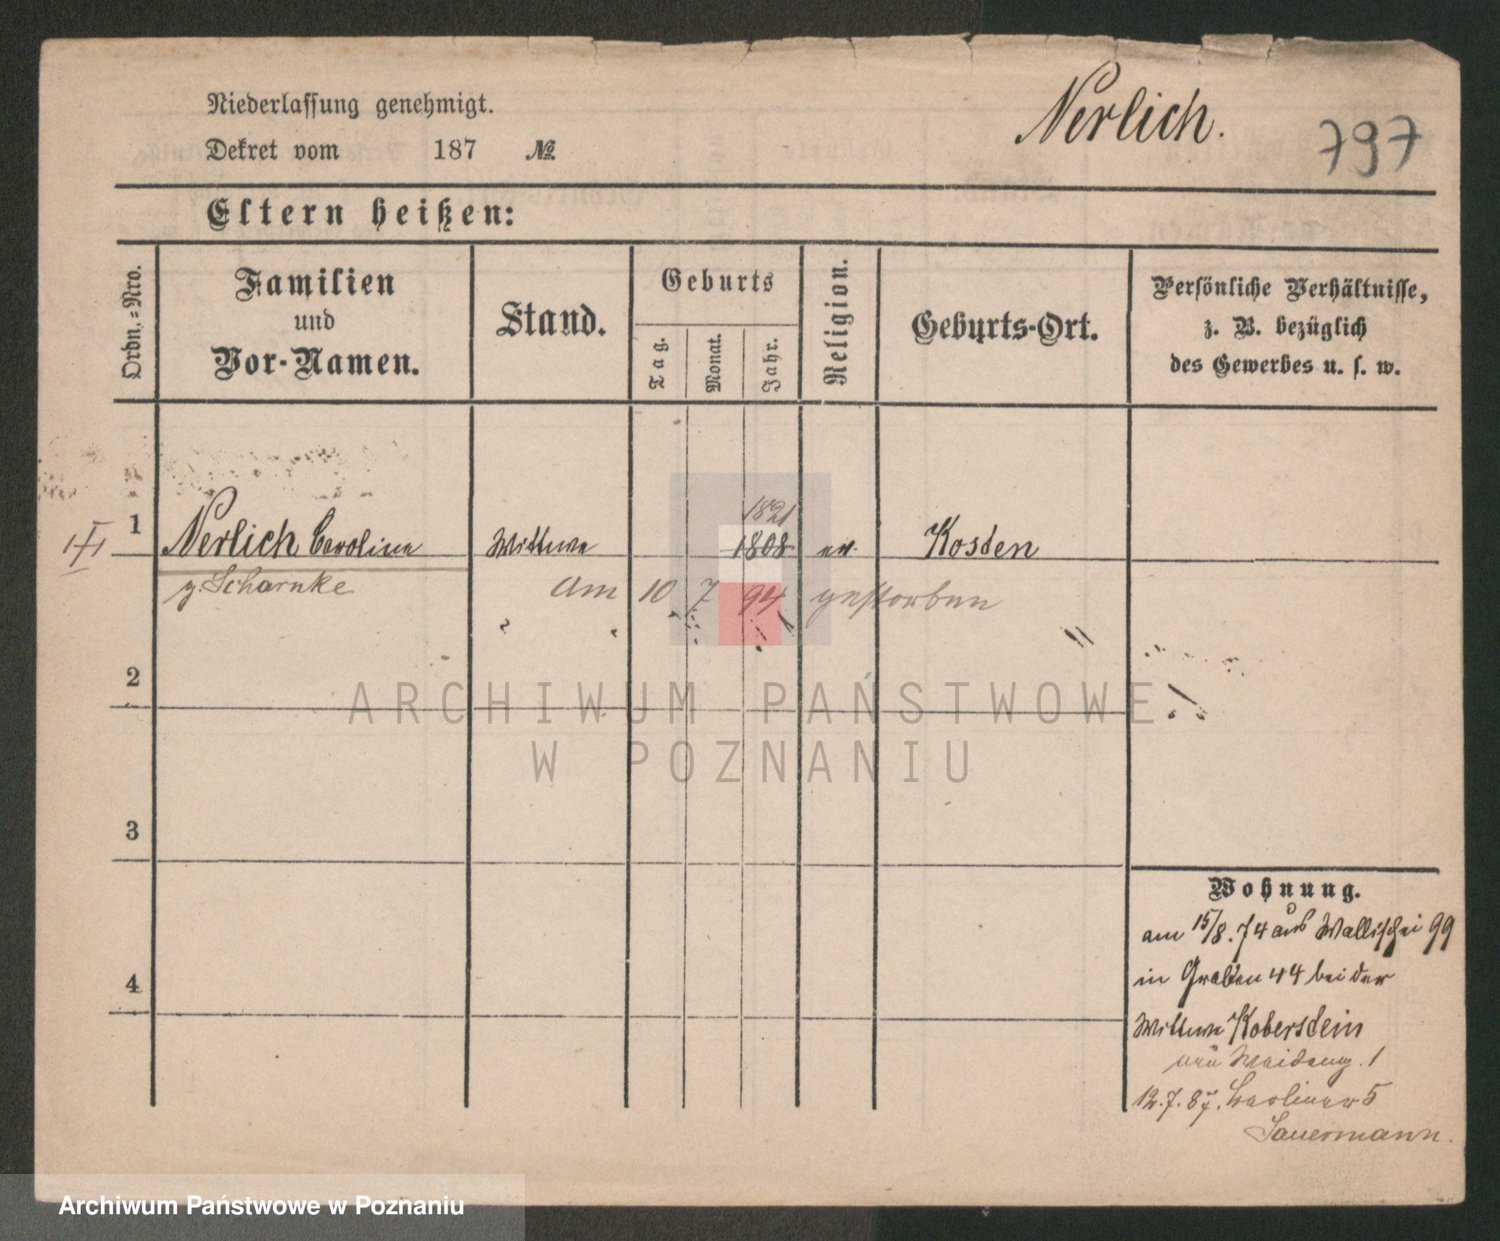 Niederlassung genehmigt.
Nerlich.
797
Dekret vom 187 №
Eltern heißen:
Ordn.=Nro.
Familien
und
Vor-Namen.
Stand.
Geburts
Tag.
Monat.
Jahr.
Religion.
Geburts-Ort.
Persönliche Verhältnisse,
z. B. bezüglich
des Gewerbes u. s. w.
1821
1 Nerlich Caroline Wittwe 1808 ev. Kosten
g. Scharnke Am 10 7 94 gestorben
2
ARCHIWUM PAŃSTWOWE
W POZNANIU
3
4
Wohnung.
am 15/8. 74 aus Wallischei 99
in Graben 44 bei der
Wittwe Koberstein
1
12.7.87. Berliner 5
Sauermann.
Archiwum Państwowe w Poznaniu